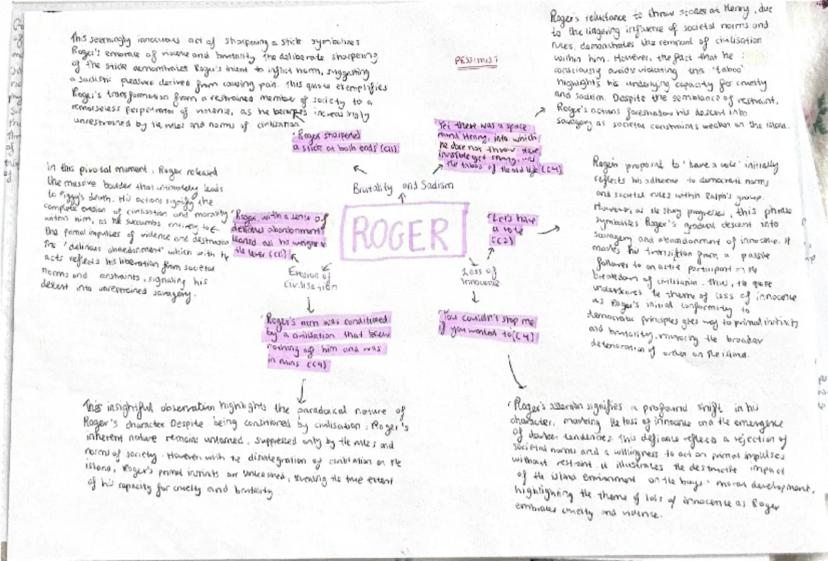 This seemingly innocuous act of sharpening a stick symbolises
Roger's embrace of violence and brutality. The deliberate sharpening
of the stick demonstrates Roger's intent to inflict harm, suggesting
a sadistic pleasure derived from causing pain. This quote exemplifies
Roger's transformation from a restrained member of society to a
remorseless perpetrator of violence, as he becomes increasingly
unrestrained by the rules and norms of civilization.
'Roger sharpened
a stick at both ends' (C11)
PESSIMIST
Yet there was a space
round Henry, into which
he dare not throw. Here,
invisible yet strong, was
the taboo of the old life (C4)
Roger's reluctance to throw stones at Henry, due
to the lingering influence of societal norms and
rules, demonstrates the remnant of civilisation
within him. However, the fact that he
consciously avoids violating this 'taboo'
highlights his underlying capacity for cruelty
and sadism. Despite the semblance of restraint,
Roger's actions foreshadow his descent into
savagery as societal constraints weaken on the island.
Brutality and Sadism
ROGER
In this pivotal moment, Roger released
the massive boulder that ultimately leads
to Piggy's death. His actions signify the
complete erosion of civilisation and morality
within him, as he succumbs entirely to
the primal impulses of violence and destruction
The 'delirious abandonment' which with he
acts reflects his liberation from societal
norms and constraints, signaling his
descent into unrestrained savagery.
'Roger, with a sense of
delirious abandonment,
leaned all his weight on
the lever (C11)
Erosion of
Civilisation
'Roger's arm was conditioned
by a civilisation that knew
nothing of him and was
in ruins (C4)
This insightful observation highlights the paradoxical nature of
Roger's character. Despite being conditioned by civilisation, Roger's
inherent nature remains untamed, suppressed only by the rules and
norms of society. However with the disintegration of civilisation on the
island, Roger's primal instincts are unleashed, revealing the true extent
of his capacity for cruelty and brutality.
Loss of
Innocence
'Let's have
a vote'
(C2)
Roger's proposal to 'have a vote' initially
reflects his adherence to democratic norms
and societal rules within Ralph's group.
However, as the story progresses, this phrase
symbolises Roger's gradual descent into
savagery and abandonment of innocence. It
marks his transition from a passive
follower to an active participant in the
breakdown of civilisation. Thus, the quote
underscores the theme of loss of innocence
as Roger's initial conformity to
democratic principles gives way to primal instincts
and brutality, mirroring the broader
deterioration of order on the island.
'You couldn't stop me
if you wanted to (C4)
'Roger's assertion signifies a profound shift in his
character, marking the loss of innocence and the emergence
of darker tendencies. This defiance reflects a rejection of
societal norms and a willingness to act on primal impulses
without restraint. It illustrates the destructive impact
of the island environment on the boys' moral development,
highlighting the theme of loss of innocence as Roger
embraces cruelty and violence.